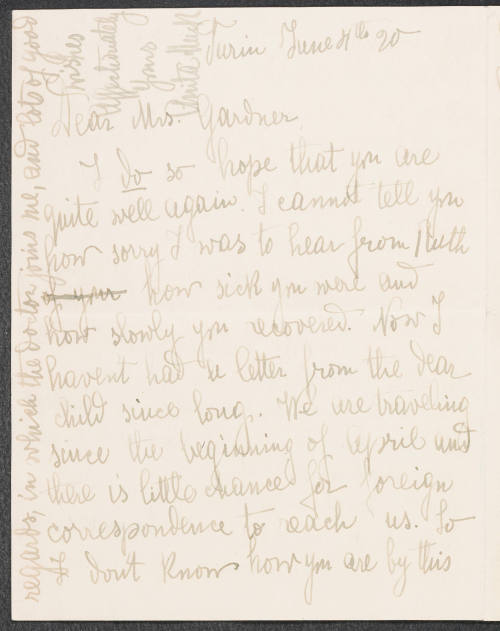 Turin June 4th 20
Dear Mrs. Gardner.
I do so hope that you are
quite well again. I cannot tell you
how sorry I was to hear from Ruth
of your how sick you were and
how slowly you recovered. Now I
havent had a letter from the dear
child since long. We are traveling
since the beginning of April and
there is little chance for foreign
correspondence to reach us. So
I don't know how you are by this
regards, in which the doctor joins me, and lots of good
wishes
Affectionately
Yours
Anita Muck